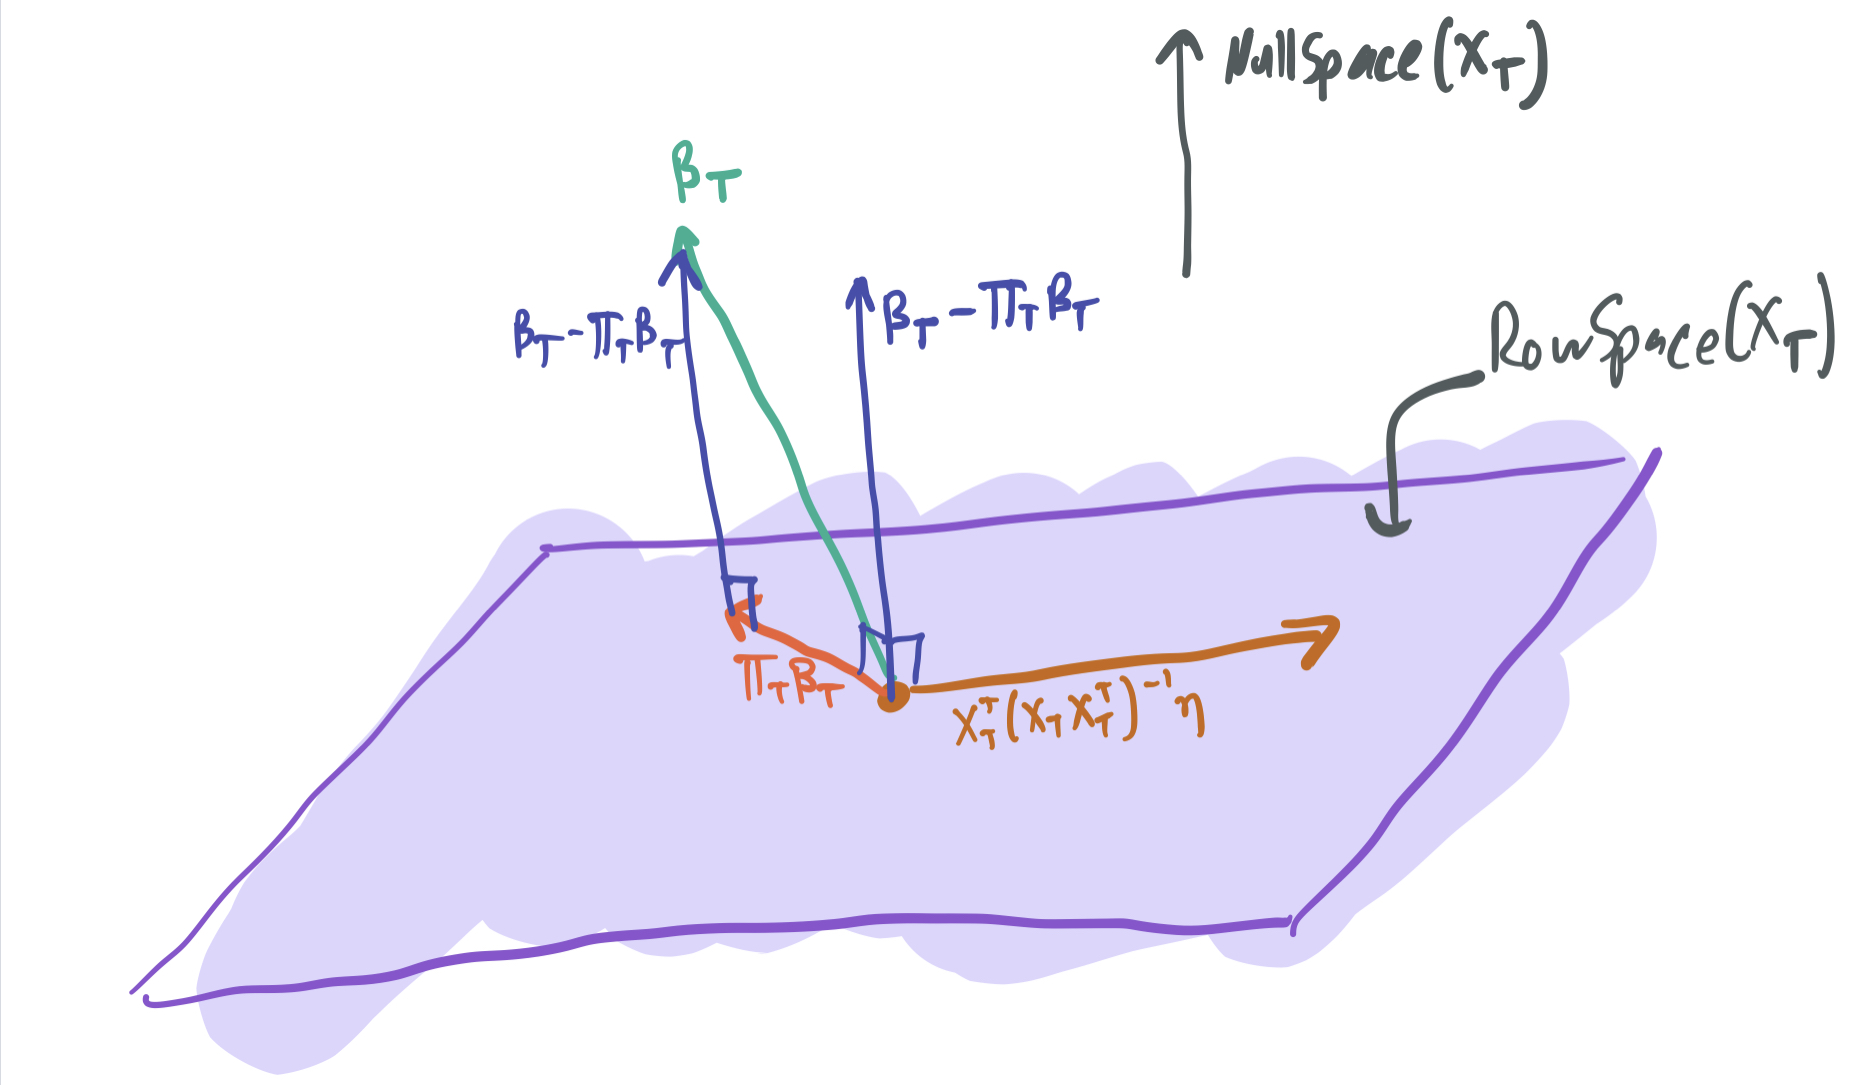 NullSpace(X_T)
β_T
β_T - Π_T β_T
β_T - Π_T β_T
RowSpace(X_T)
Π_T β_T
X_T^T (X_T X_T^T)^{-1} η